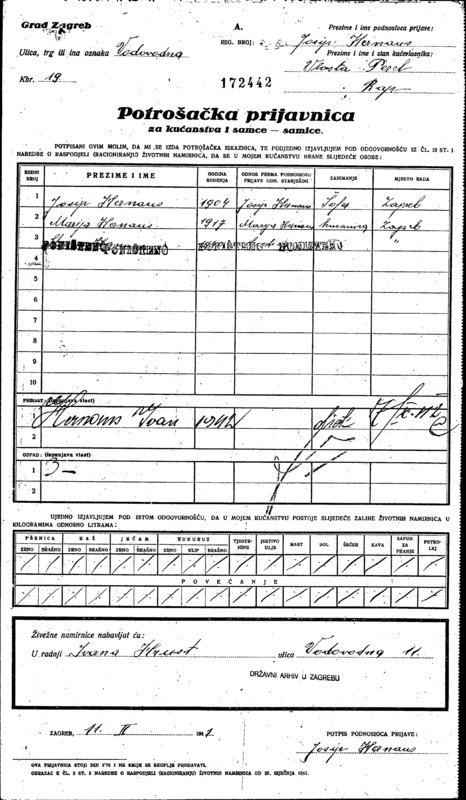 Grad Zagreb
A.
Prezime i ime podnosioca prijave:
REG. BROJ:
Josip Hernaus
Ulica, trg ili ina oznaka Vodovodna
Prezime i ime i stan kućevlasnika:
Vlasta
Kbr. 19
172442
Potrošačka prijavnica
za kućanstva i samce — samice.
POTPISANI OVIM MOLIM, DA MI SE IZDA POTROŠAČKA ISKAZNICA, TE PODJEDNO IZJAVLJUJEM POD ODGOVORNOŠĆU IZ ČL. 18 ST. 1
NAREDBE O RASPODJELI (RACIONIRANJU) ŽIVOTNIH NAMIRNICA, DA SE U MOJEM KUĆANSTVU HRANE SLIJEDEĆE OSOBE:
REDNI BROJ PREZIME I IME GODINA ROĐENJA ODNOS PREMA PODNOSIOCU PRIJAVE ODN. STARJEŠINI ZANIMANJE MJESTO RADA
1 Josip Hernaus 1904 Josip Hernaus Zagreb
2 Marija Hernaus 1917 Marija Hernaus kućanica Zagreb
3 "
PONIŠTENO PONIŠTENO PONIŠTENO PONIŠTENO
4
5
6
7
8
9
10
PRIRAST: (Ispunjava vlast)
1 Hernaus Ivan 1942
2
ODPAD: (Ispunjava vlast)
1 3-
2
UJEDNO IZJAVLJUJEM POD ISTOM ODGOVORNOŠĆU, DA U MOJEM KUĆANSTVU POSTOJE SLIJEDEĆE ZALIHE ŽIVOTNIH NAMIRNICA U
KILOGRAMIMA ODNOSNO LITRAMA:
PŠENICA RAŽ JEČAM KUKURUZ TJESTENINE JESTIVO ULJE MAST SOL ŠEĆER KAVA SAPUN ZA PRANJE PETROLEJ
ZRNO BRAŠNO ZRNO BRAŠNO ZRNO BRAŠNO ZRNO KLIP BRAŠNO
POVEĆANJE
Živežne namirnice nabavljat ću:
U radnji Ivana Hrust ulica Vodovodna 11.
DRŽAVNI ARHIV U ZAGREBU
ZAGREB, 11. II 1941
POTPIS PODNOSIOCA PRIJAVE:
Josip Hernaus
OVA PRIJAVNICA STOJI DIN 0'75 I NE SMIJE SE SKUPLJE PRODAVATI.
OBRAZAC K ČL. 2 ST. 2 NAREDBE O RASPODJELI (RACIONIRANJU) ŽIVOTNIH NAMIRNICA OD 27. SIJEČNJA 1941.